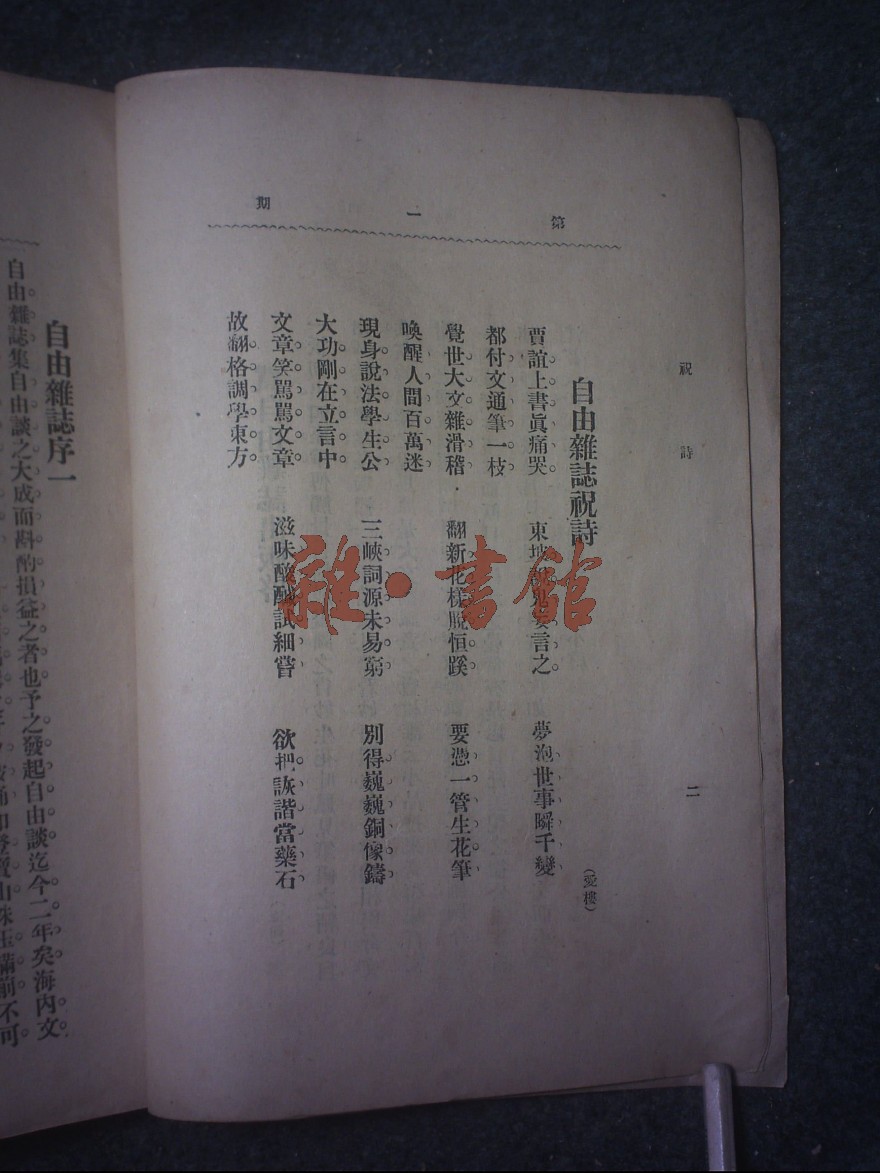 祝詩 二
第一期
自由雜誌祝詩
(愛樓)
賈誼上書眞痛哭 東坡說鬼妄言之 夢泡世事瞬千變
都付文通筆一枝
覺世大文雜滑稽 翻新花樣脫恒蹊 要慿一管生花筆
喚醒人間百萬迷
現身說法學生公 三峽詞源未易窮 別得巍巍銅像鑄
大功剛在立言中
文章笑罵罵文章 滋味酸醎試細嘗 欲把詼諧當藥石
故翻格調學東方
自由雜誌序一
自由雜誌集自由談之大成而斟酌損益之者也予之發起自由談迄今二年矣海內文
山珠玉滿前不可
雜·書館